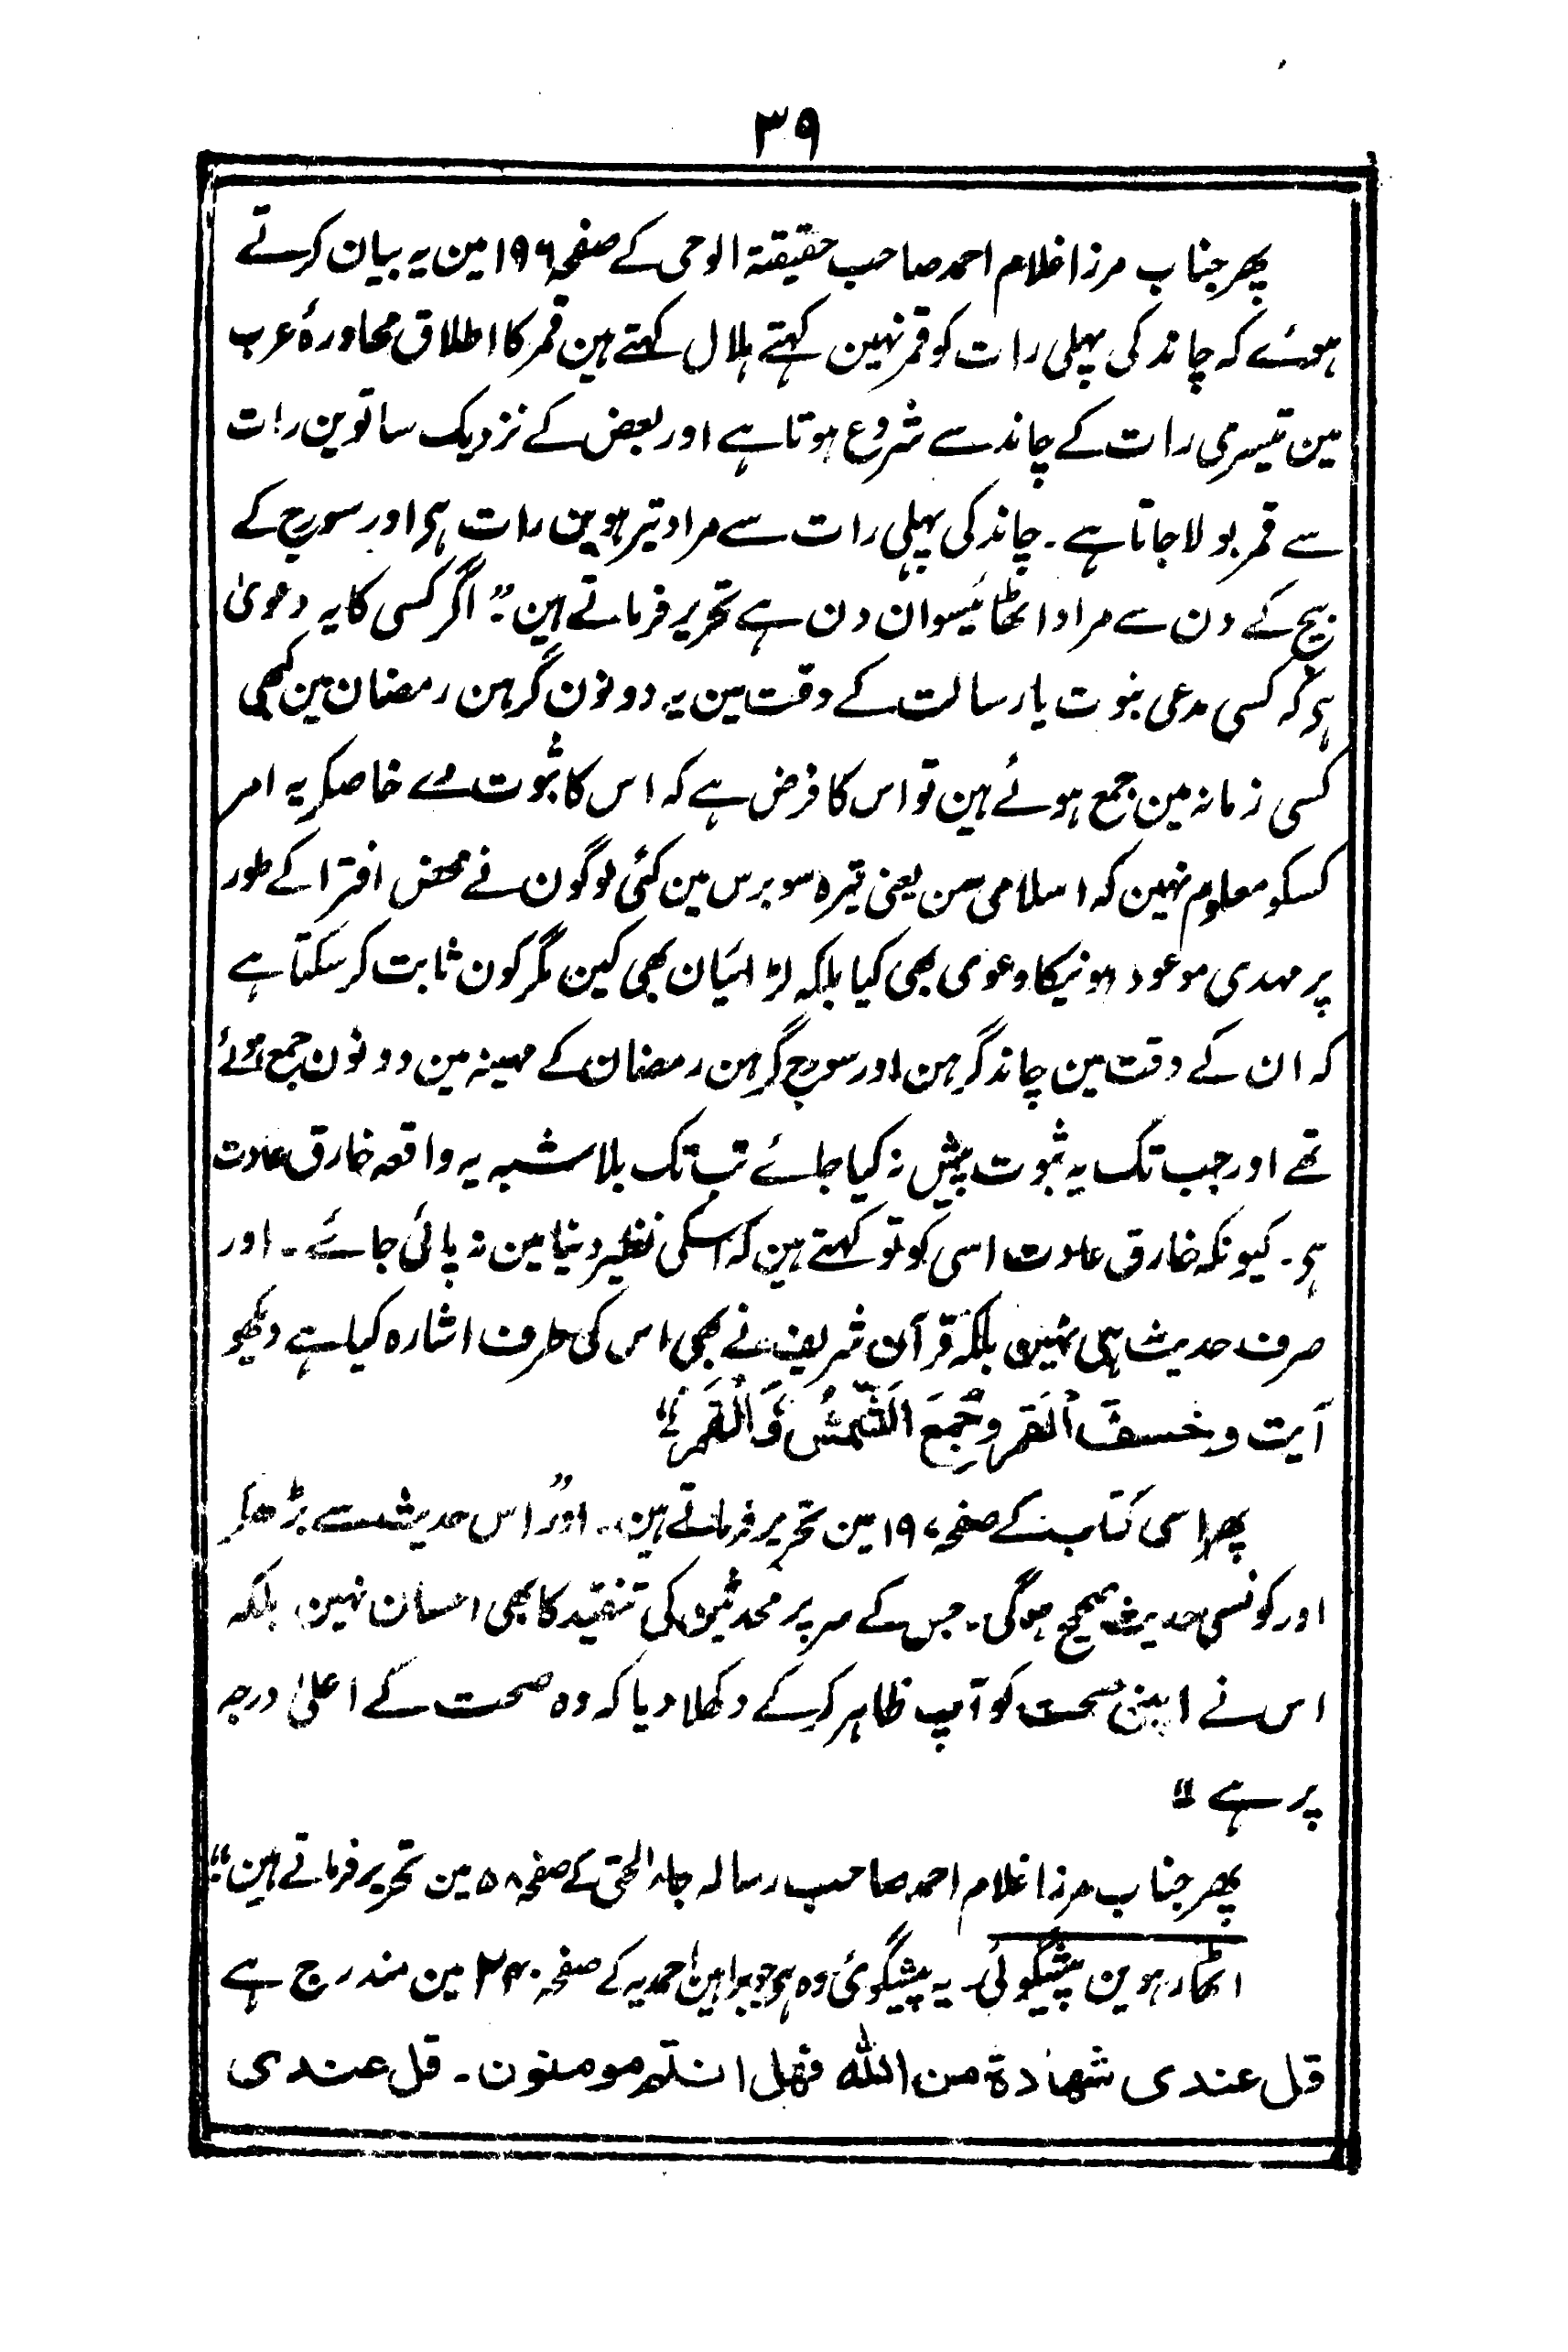 ۳۹
پھر جناب مرزا غلام احمد صاحب حقیقۃ الوحی کے صفحہ ۱۹۶ مین یہ بیان کرتے
ہوئے کہ چاند کی پہلی رات کو قمر نہین کہتے ہلال کہتے ہین قمر کا اطلاق محاورۂ عرب
مین تیسری رات کے چاند سے شروع ہوتا ہے اور بعض کے نزدیک ساتوین رات
سے قمر بولا جاتا ہے ۔ چاند کی پہلی رات سے مراد تیرہوین رات ہی اور سورج کے
بیچ کے دن سے مراد اٹھائیسوان دن ہے تحریر فرماتے ہین :” اگر کسی کا یہ دعویٰ
ہی کہ کسی مدعی نبوت یا رسالت کے وقت مین یہ دونون گرہن رمضان مین کبھی
کسی زمانہ مین جمع ہوئے ہین تو اس کا فرض ہے کہ اس کا ثبوت دے خاصکر یہ امر
کسکو معلوم نہین کہ اسلامی سن یعنی تیرہ سو برس مین کئی لوگون نے محض افترا کے طور
پر مہدی موعود ہونیکا دعوی بھی کیا بلکہ لڑائیان بھی کین مگر کون ثابت کر سکتا ہے
کہ ان کے وقت مین چاند گرہن اور سورج گرہن رمضان کے مہینہ مین دونون جمع ہوئے
تھے اور جب تک یہ ثبوت پیش نہ کیا جائے تب تک بلا شبہ یہ واقعہ خارق عادت
ہی ۔ کیونکہ خارق عادت اسی کو تو کہتے ہین کہ اسکی نظیر دنیا مین نہ پائی جائے ۔ اور
صرف حدیث ہی نہین بلکہ قرآن شریف نے بھی اس کی طرف اشارہ کیا ہے دیکھو
آیت وخسف القمر وجُمِعَ الشَّمْسُ وَالْقَمَرُ “
پھر اسی کتاب کے صفحہ ۱۹۷ مین تحریر فرماتے ہین ۔ اور ” اس حدیث سے بڑھکر
اور کونسی حدیث صحیح ہوگی ۔ جس کے سر پر محدثین کی تنقید کا بھی احسان نہین بلکہ
اس نے اپنی صحت کو آپ ظاہر کر کے دکھلا دیا کہ وہ صحت کے اعلیٰ درجہ
پر ہے “
پھر جناب مرزا غلام احمد صاحب رسالہ جاء الحق کے صفحہ ۵۸ مین تحریر فرماتے ہین :“
اٹھارہوین پیشگوئی ۔ یہ پیشگوئی وہ ہی جو براہین احمدیہ کے صفحہ ۲۴۰ مین مندرج ہے
قل عندی شھادۃ من اللہ فھل انتم مومنون ۔ قل عندی